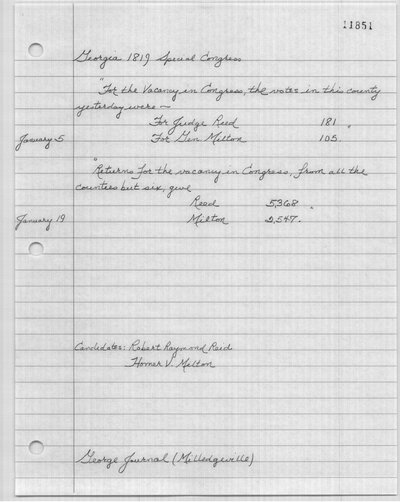 11851
Georgia 1819 Special Congress
"For the Vacancy in Congress, the votes in this county
yesterday were ~
For Judge Reed 181.
January 5 For Gen Milton 105.
"Returns for the vacancy in Congress, from all the
counties but six, give
Reed 5,368.
January 19 Milton 2,547.
Candidates: Robert Raymond Reid
Homer V. Milton
George Journal (Milledgeville)